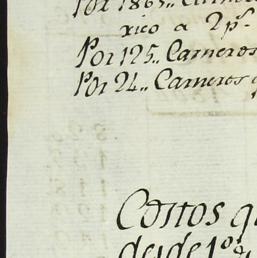 Por 1865.. Carnero
xico a 2 p.s
Por 125.. Carneros
Por 24.. Carneros q
Costos q
desde 1.o d